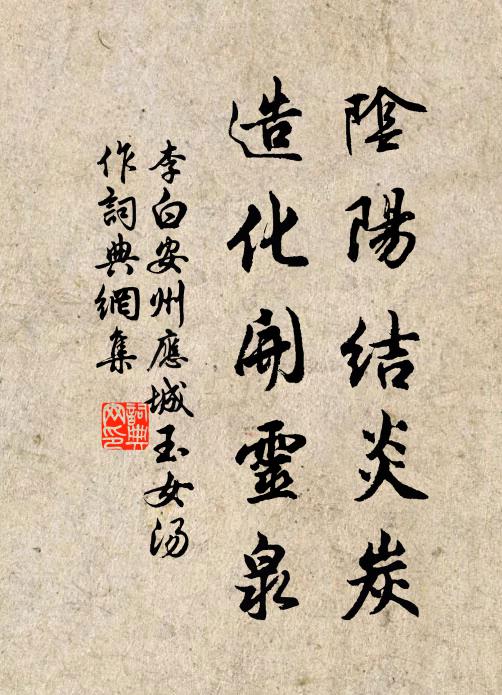 陰陽結炎炭
造化開靈泉
李白安州應城玉女汤
作詞典網集
詞典
网印